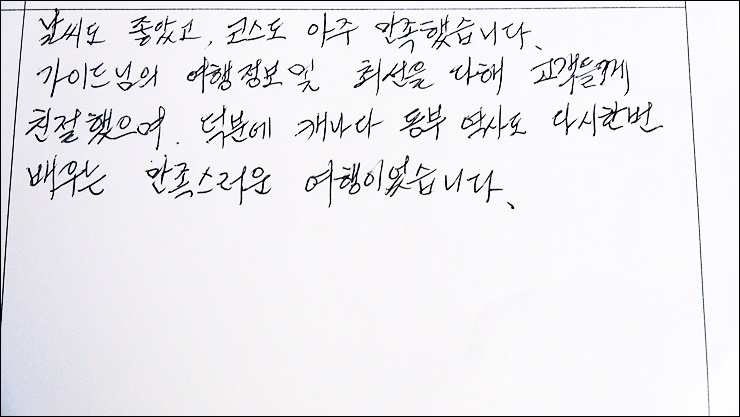 날씨도 좋았고, 코스도 아주 만족했습니다.
가이드님의 여행정보 및 최선을 다해 고객들께
친절했으며. 덕분에 캐나다 동부 역사도 다시한번
배우는 만족스러운 여행이었습니다.